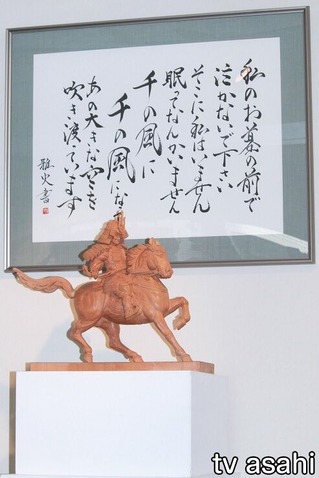 私のお墓の前で
泣かないで下さい
そこに私はいません
眠ってなんかいません
千の風に
千の風にな
あの大きな空を
吹き渡っています
雅火書
tv asahi